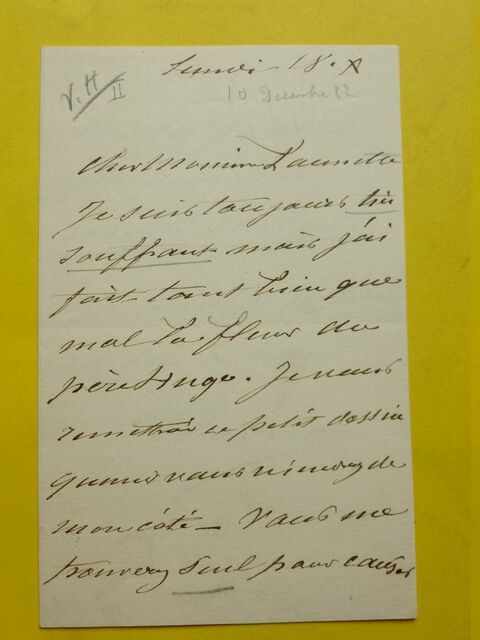 Lundi 18. X
V. H
II
10 Decembre 82
Cher Monsieur Launette
Je suis toujours très
souffrant mais j'ai
fait tant bien que
mal la fleur du
père Singe. Je vous
remettrai ce petit dessin
quand vous viendrez de
mon côté – Vous me
trouverez seul pour causer